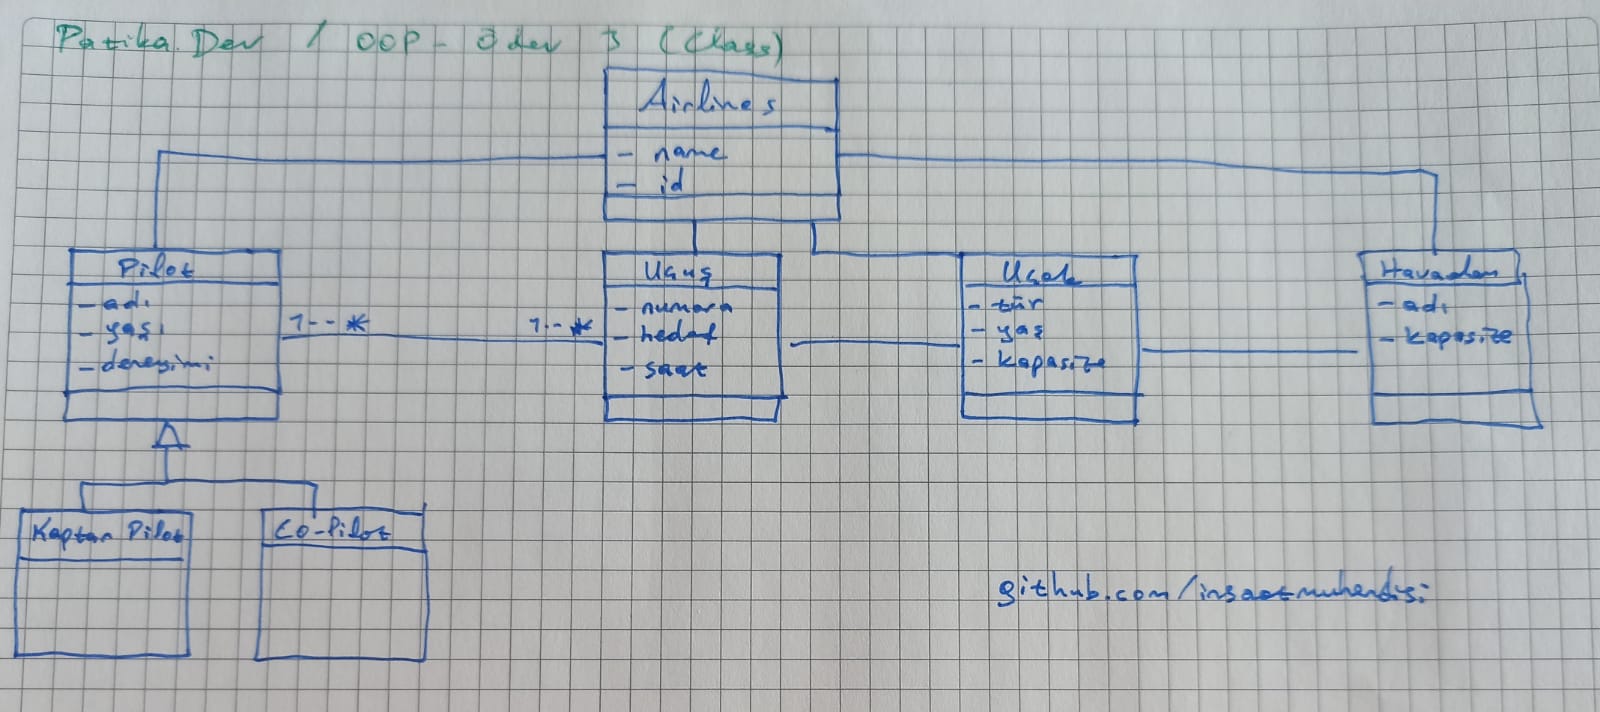 Patika.Dev / OOP - Ödev 3 (Class)
Airlines
- name
- id
Pilot
- adı
- yaşı
- deneyimi
1--*
1--*
Uçuş
- numara
- hedef
- saat
Uçak
- tür
- yaş
- kapasite
Havaalanı
- adı
- kapasite
Kaptan Pilot
Co-Pilot
github.com/insaatmuhendisi